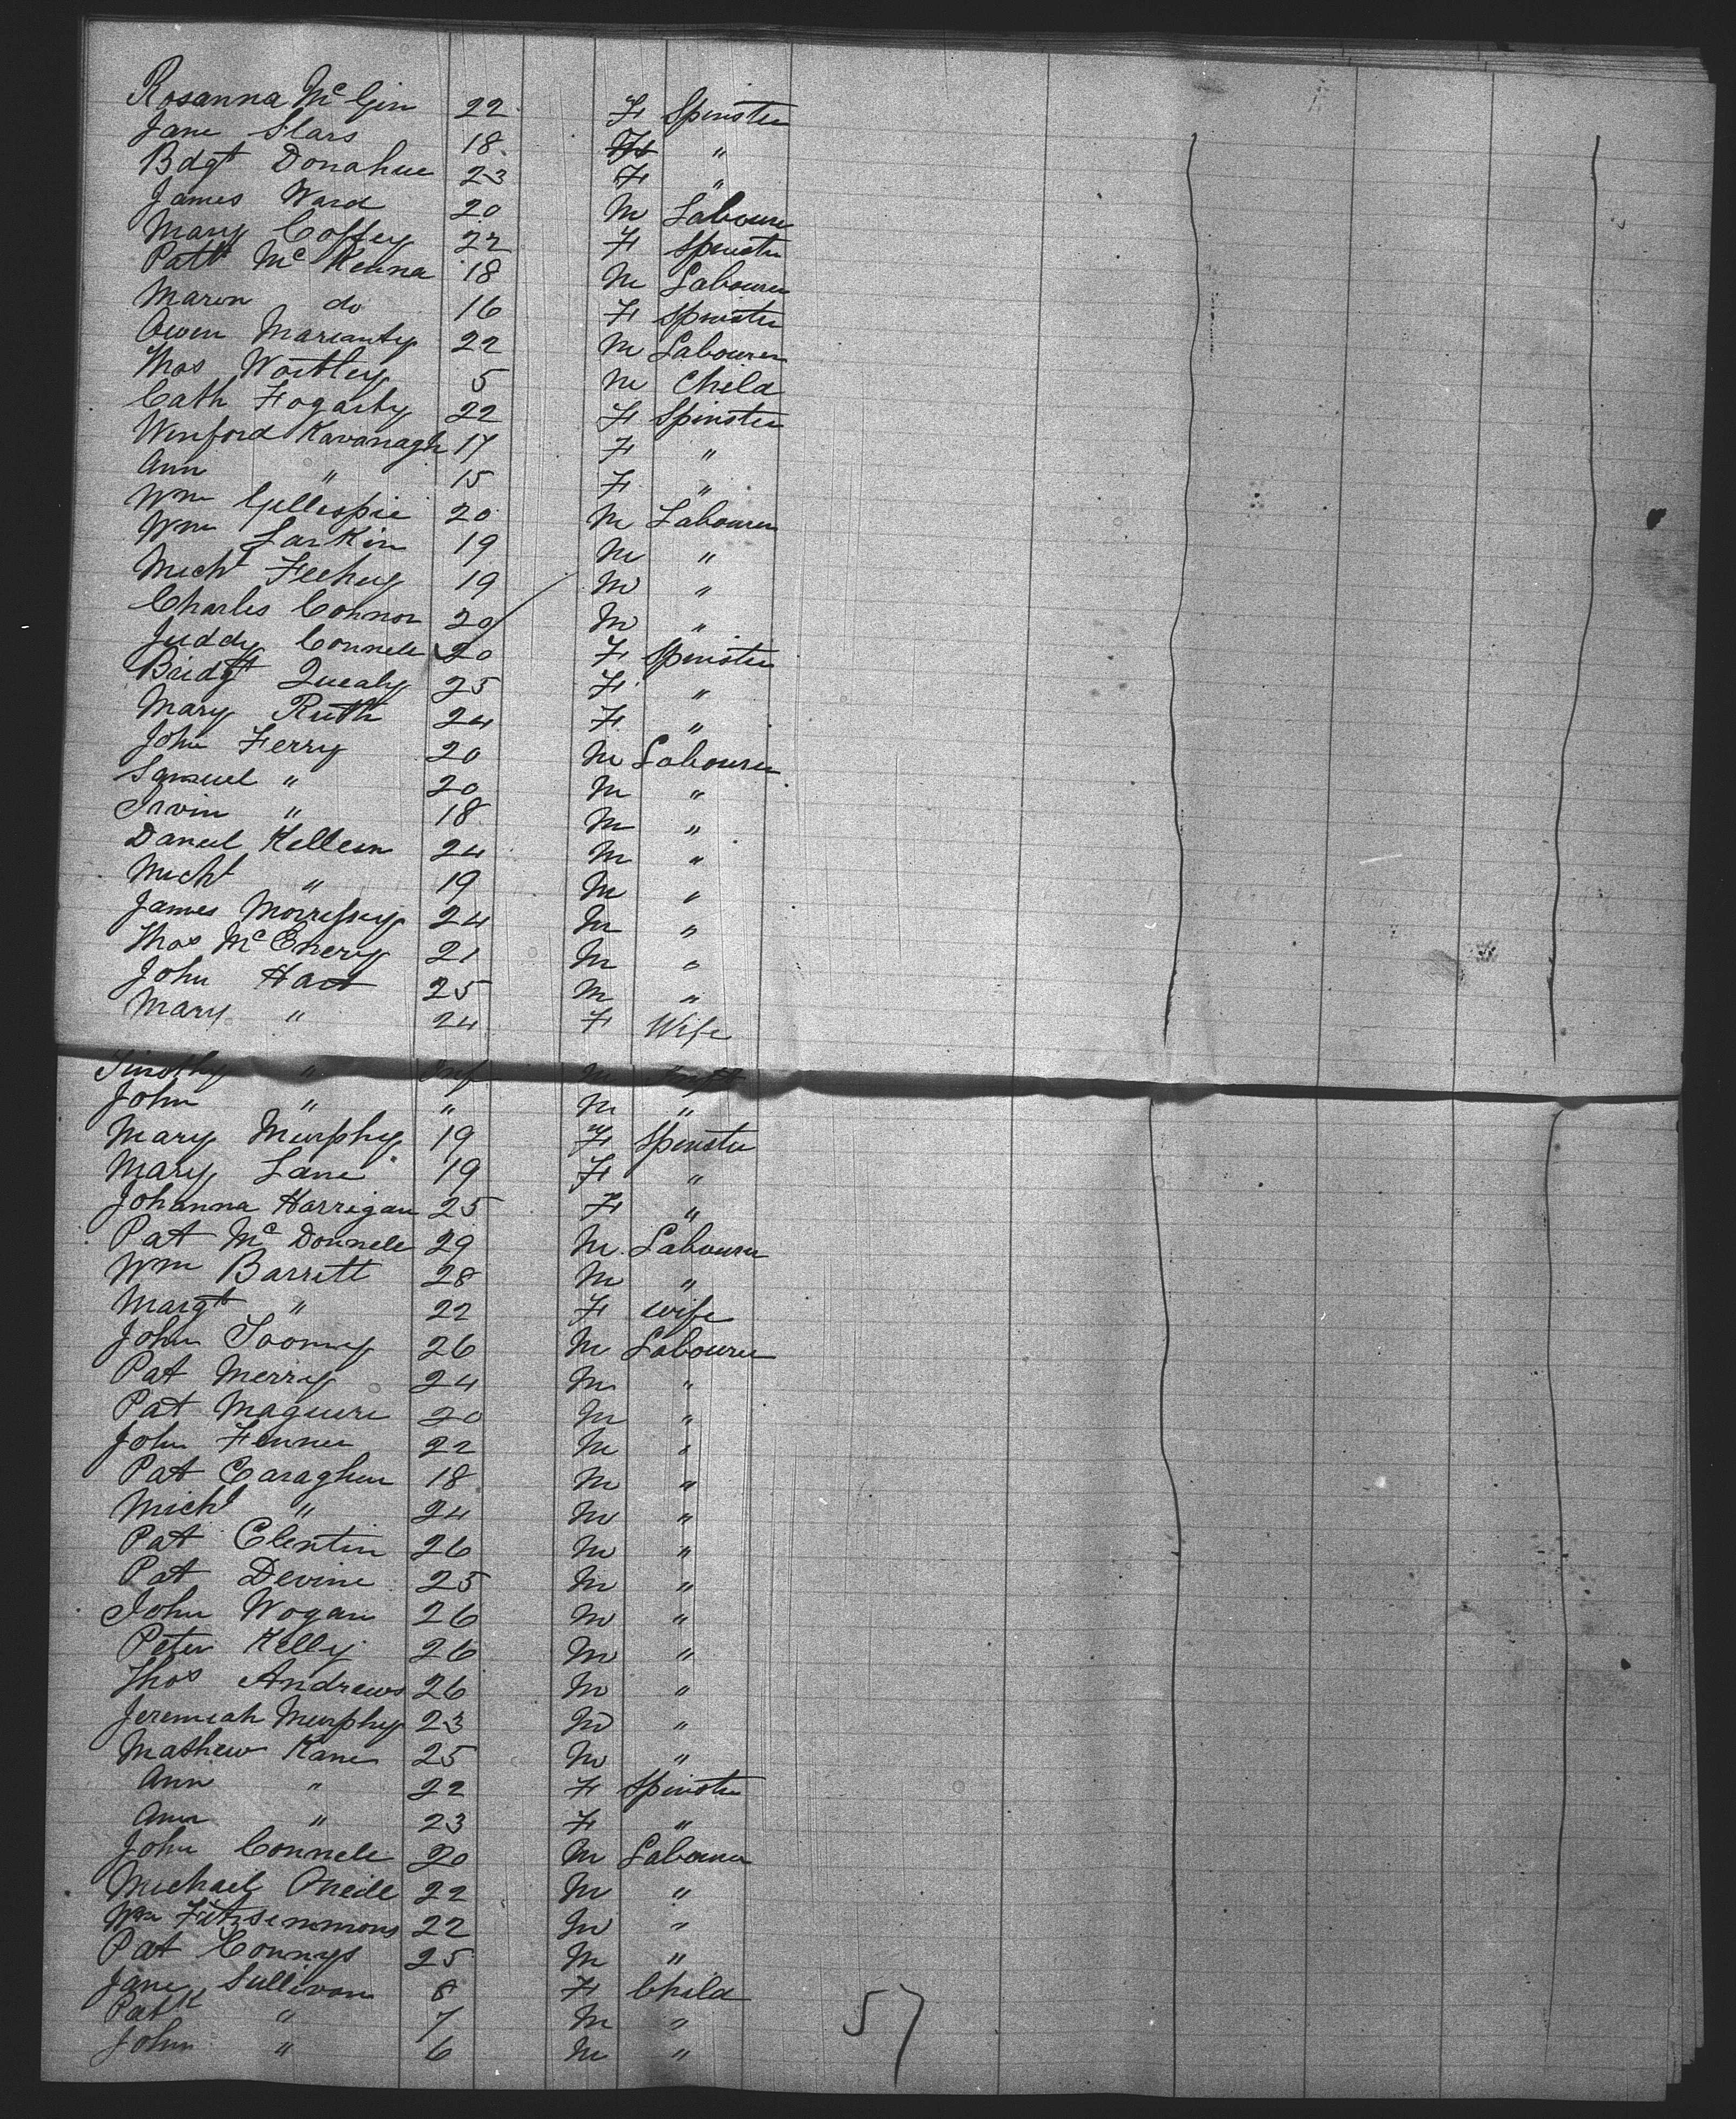 Rosanna McGin 22 F Spinster
Jane Slars 18 F "
Bdgt Donahue 23 F "
James Ward 20 M Labourer
Mary Coffey 22 F Spinster
Patk McKenna 18 M Labourer
Maron do 16 F Spinster
Owen Marianty 22 M Labourer
Thos Wortley 5 M Child
Cath Fogarty 22 F Spinster
Winford Kavanagh 17 F "
Ann " 15 F "
Wm Gillespie 20 M Labourer
Wm Larkin 19 M "
Michl Feehey 19 M "
Charles Connor 20 M "
Juddy Connell 20 F Spinster
Bridgt Quealy 25 F "
Mary Ruth 24 F "
John Ferry 20 M Labourer
Samuel " 20 M "
Irvin " 18 M "
Daniel Killeen 24 M "
Michl " 19 M "
James Morrissey 24 M "
Thos McEnery 21 M "
John Hart 25 M "
Mary " 24 F Wife
Timothy " Inf M Inft
John " " M "
Mary Murphy 19 F Spinster
Mary Lane 19 F "
Johanna Harrigan 25 F "
Pat McDonnell 29 M Labourer
Wm Barrett 28 M "
Margt " 22 F wife
John Toomey 26 M Labourer
Pat Merry 24 M "
Pat Maguire 20 M "
John Fenner 22 M "
Pat Caraghen 18 M "
Michl " 24 M "
Pat Clentin 26 M "
Pat Devine 25 M "
John Wogan 26 M "
Peter Kelly 26 M "
Thos Andrews 26 M "
Jeremiah Murphy 23 M "
Mathew Kane 25 M "
Ann " 22 F Spinster
Ann " 23 F "
John Connell 20 M Labourer
Michael Oneill 22 M "
Wm Fitzsimmons 22 M "
Pat Connys 25 M "
Jane Sullivan 8 F Child
Patk " 7 M "
John " 6 M "
57